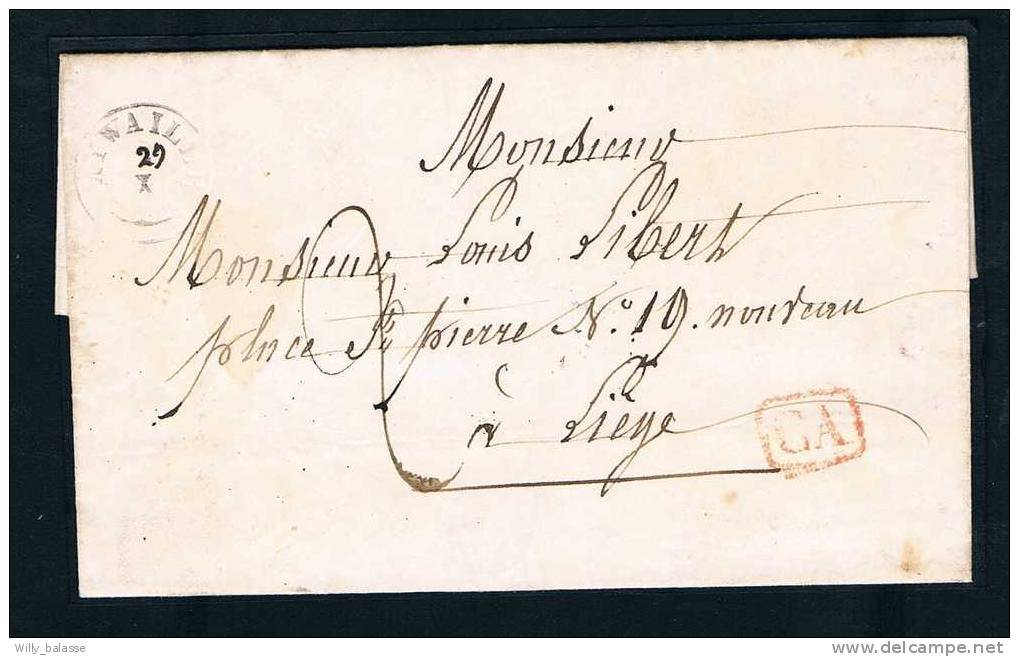 AYWAILLE
29
X
Monsieur
Monsieur Louis Libert
place St. pierre No. 19. nouveau
à Liège
CA
Willy_balasse
delcampe.net